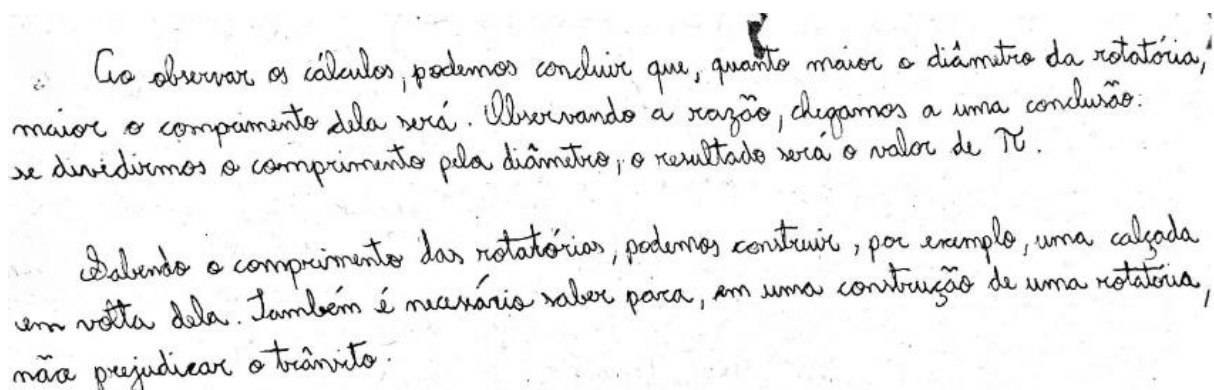 Ao observar os cálculos, podemos concluir que, quanto maior o diâmetro da rotatória,
maior o compimento dela será. Observando a razão, chegamos a uma conclusão:
se dividirmos o comprimento pelo diâmetro, o resultado será o valor de π.
Sabendo o comprimento das rotatórias, podemos construir, por exemplo, uma calçada
em volta dela. Também é necessário saber para, em uma construção de uma rotatória,
não prejudicar o trânsito.